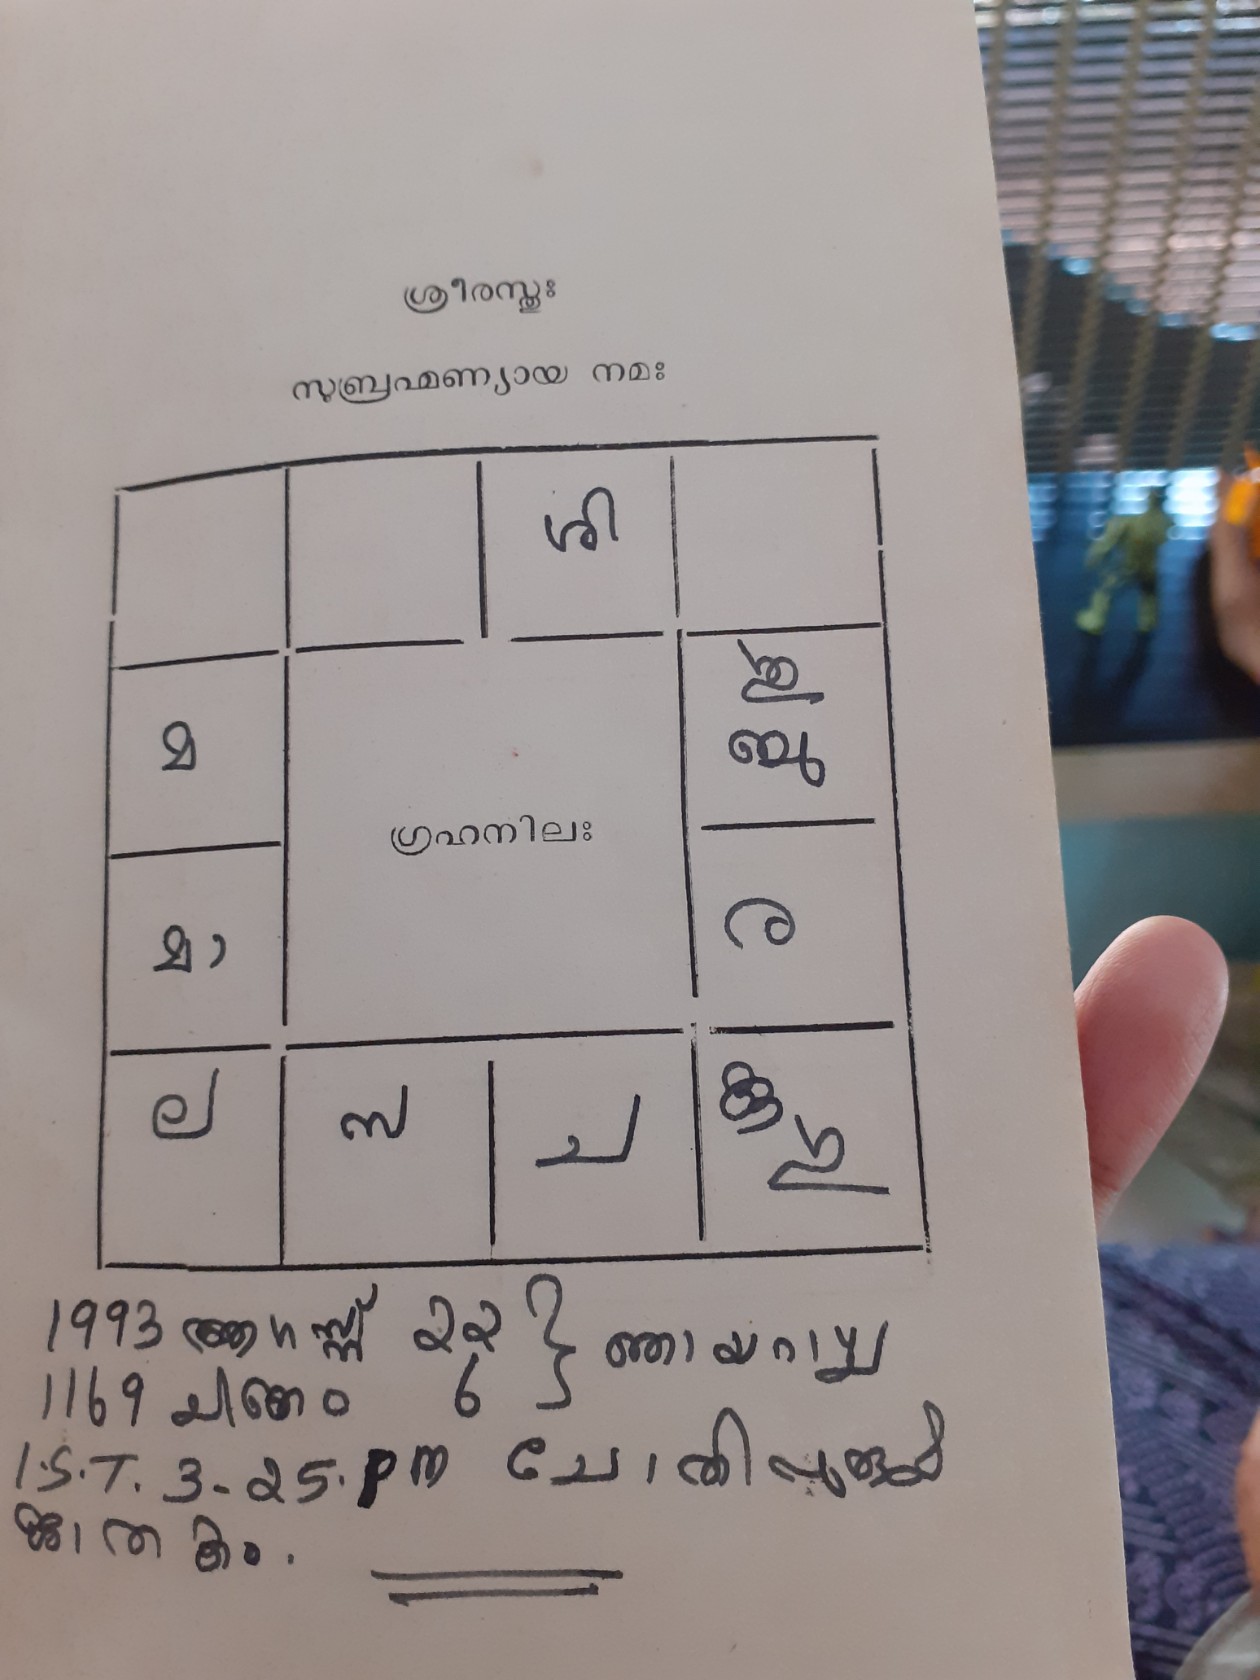 ശ്രീരസ്തുഃ
സുബ്രഹ്മണ്യായ നമഃ
ശി
മ
ബു
ഗ്രഹനിലഃ
മാ
ര
ല
സ
ച
1993 ആഗസ്റ്റ് 22 } ഞായറാഴ്ച
1169 ചിങ്ങം 6
I.S.T. 3-25.pm ചോതി
ജാതകം.